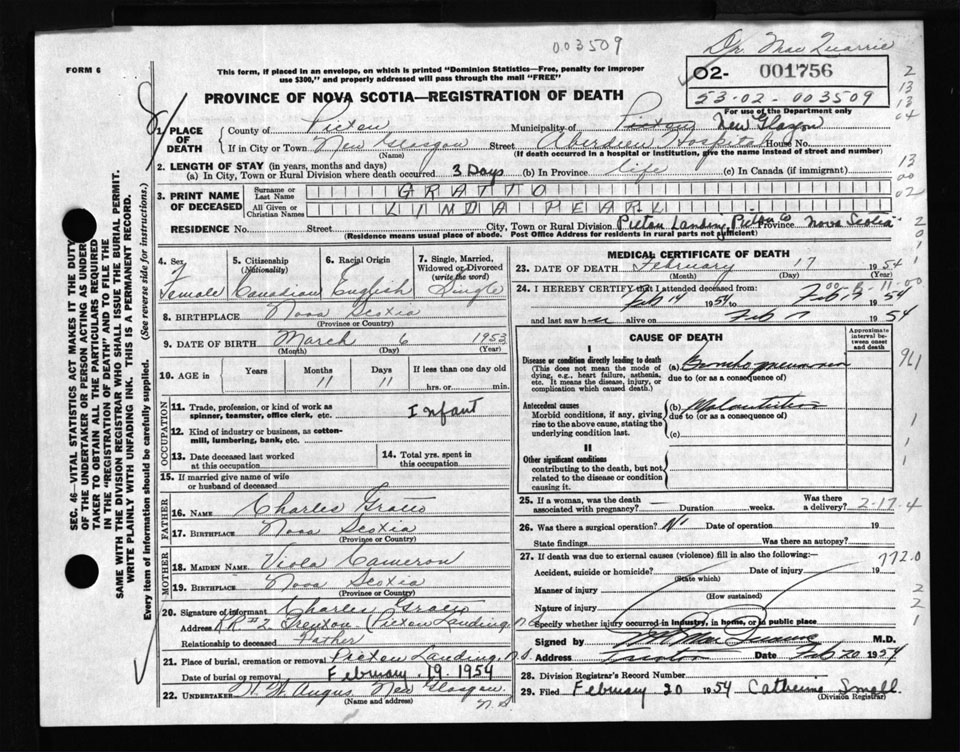 003509
Dr. MacQuarrie
FORM 6
This form, if placed in an envelope, on which is printed "Dominion Statistics—Free, penalty for improper
use $300," and properly addressed will pass through the mail "FREE"
02- 001756
53-02-003509
For use of the Department only
PROVINCE OF NOVA SCOTIA—REGISTRATION OF DEATH
1. PLACE OF DEATH
County of Pictou Municipality of Pictou New Glasgow
If in City or Town New Glasgow Street Aberdeen Hospital House No.
(Name) (If death occurred in a hospital or institution, give the name instead of street and number)
2. LENGTH OF STAY (in years, months and days)
(a) In City, Town or Rural Division where death occurred 3 Days (b) In Province life (c) In Canada (if immigrant)
3. PRINT NAME OF DECEASED
Surname or Last Name GRATTO
All Given or Christian Names LINDA PEARL
RESIDENCE No. Street City, Town or Rural Division Pictou Landing, Pictou Co Province Nova Scotia
(Residence means usual place of abode. Post Office Address for residents in rural parts not sufficient)
4. Sex Female
5. Citizenship (Nationality) Canadian
6. Racial Origin English
7. Single, Married, Widowed or Divorced (write the word) Single
8. BIRTHPLACE Nova Scotia
(Province or Country)
9. DATE OF BIRTH March 6 1953
(Month) (Day) (Year)
10. AGE in Years Months 11 Days 11 If less than one day old
hrs. or min.
OCCUPATION
11. Trade, profession, or kind of work as spinner, teamster, office clerk, etc. Infant
12. Kind of industry or business, as cotton-mill, lumbering, bank, etc.
13. Date deceased last worked at this occupation
14. Total yrs. spent in this occupation
15. If married give name of wife or husband of deceased
FATHER
16. NAME Charles Gratto
17. BIRTHPLACE Nova Scotia
(Province or Country)
MOTHER
18. MAIDEN NAME Viola Cameron
19. BIRTHPLACE Nova Scotia
(Province or Country)
20. Signature of informant Charles Gratto
Address RR #2 Trenton Pictou Landing, N.S
Relationship to deceased Father
21. Place of burial, cremation or removal Pictou Landing, N.S
Date of burial or removal February 19 1954
22. UNDERTAKER Angus New Glasgow
(Name and address) N.S
MEDICAL CERTIFICATE OF DEATH
23. DATE OF DEATH February 17 1954
(Month) (Day) (Year)
24. I HEREBY CERTIFY that I attended deceased from:
Feb 14 1954 to Feb 17 1954
and last saw her alive on Feb 17 1954
CAUSE OF DEATH
Approximate interval between onset and death
I
Disease or condition directly leading to death
(This does not mean the mode of dying, e.g., heart failure, asthenia, etc. It means the disease, injury, or complication which caused death.)
(a) Bronchopneumonia
due to (or as a consequence of)
Antecedent causes
Morbid conditions, if any, giving rise to the above cause, stating the underlying condition last.
(b) Malnutrition
due to (or as a consequence of)
(c)
II
Other significant conditions
contributing to the death, but not related to the disease or condition causing it.
25. If a woman, was the death associated with pregnancy? Duration weeks. Was there a delivery?
2-17-4
26. Was there a surgical operation? No Date of operation 19
State findings Was there an autopsy?
27. If death was due to external causes (violence) fill in also the following:—
Accident, suicide or homicide? Date of injury 19
(State which)
772.0
Manner of injury
(How sustained)
Nature of injury
Specify whether injury occurred in industry, in home, or in public place
Signed by MacQuarrie M.D.
Address Trenton Date Feb 20 1954
28. Division Registrar's Record Number
29. Filed February 20 1954 Catherine Small
(Division Registrar)
SEC. 46—VITAL STATISTICS ACT MAKES IT THE DUTY
OF THE UNDERTAKER OR PERSON ACTING AS UNDER-
TAKER TO OBTAIN ALL THE PARTICULARS REQUIRED
IN THE "REGISTRATION OF DEATH" AND TO FILE THE
SAME WITH THE DIVISION REGISTRAR WHO SHALL ISSUE THE BURIAL PERMIT.
WRITE PLAINLY WITH UNFADING INK. THIS IS A PERMANENT RECORD.
Every item of information should be carefully supplied. (See reverse side for instructions.)